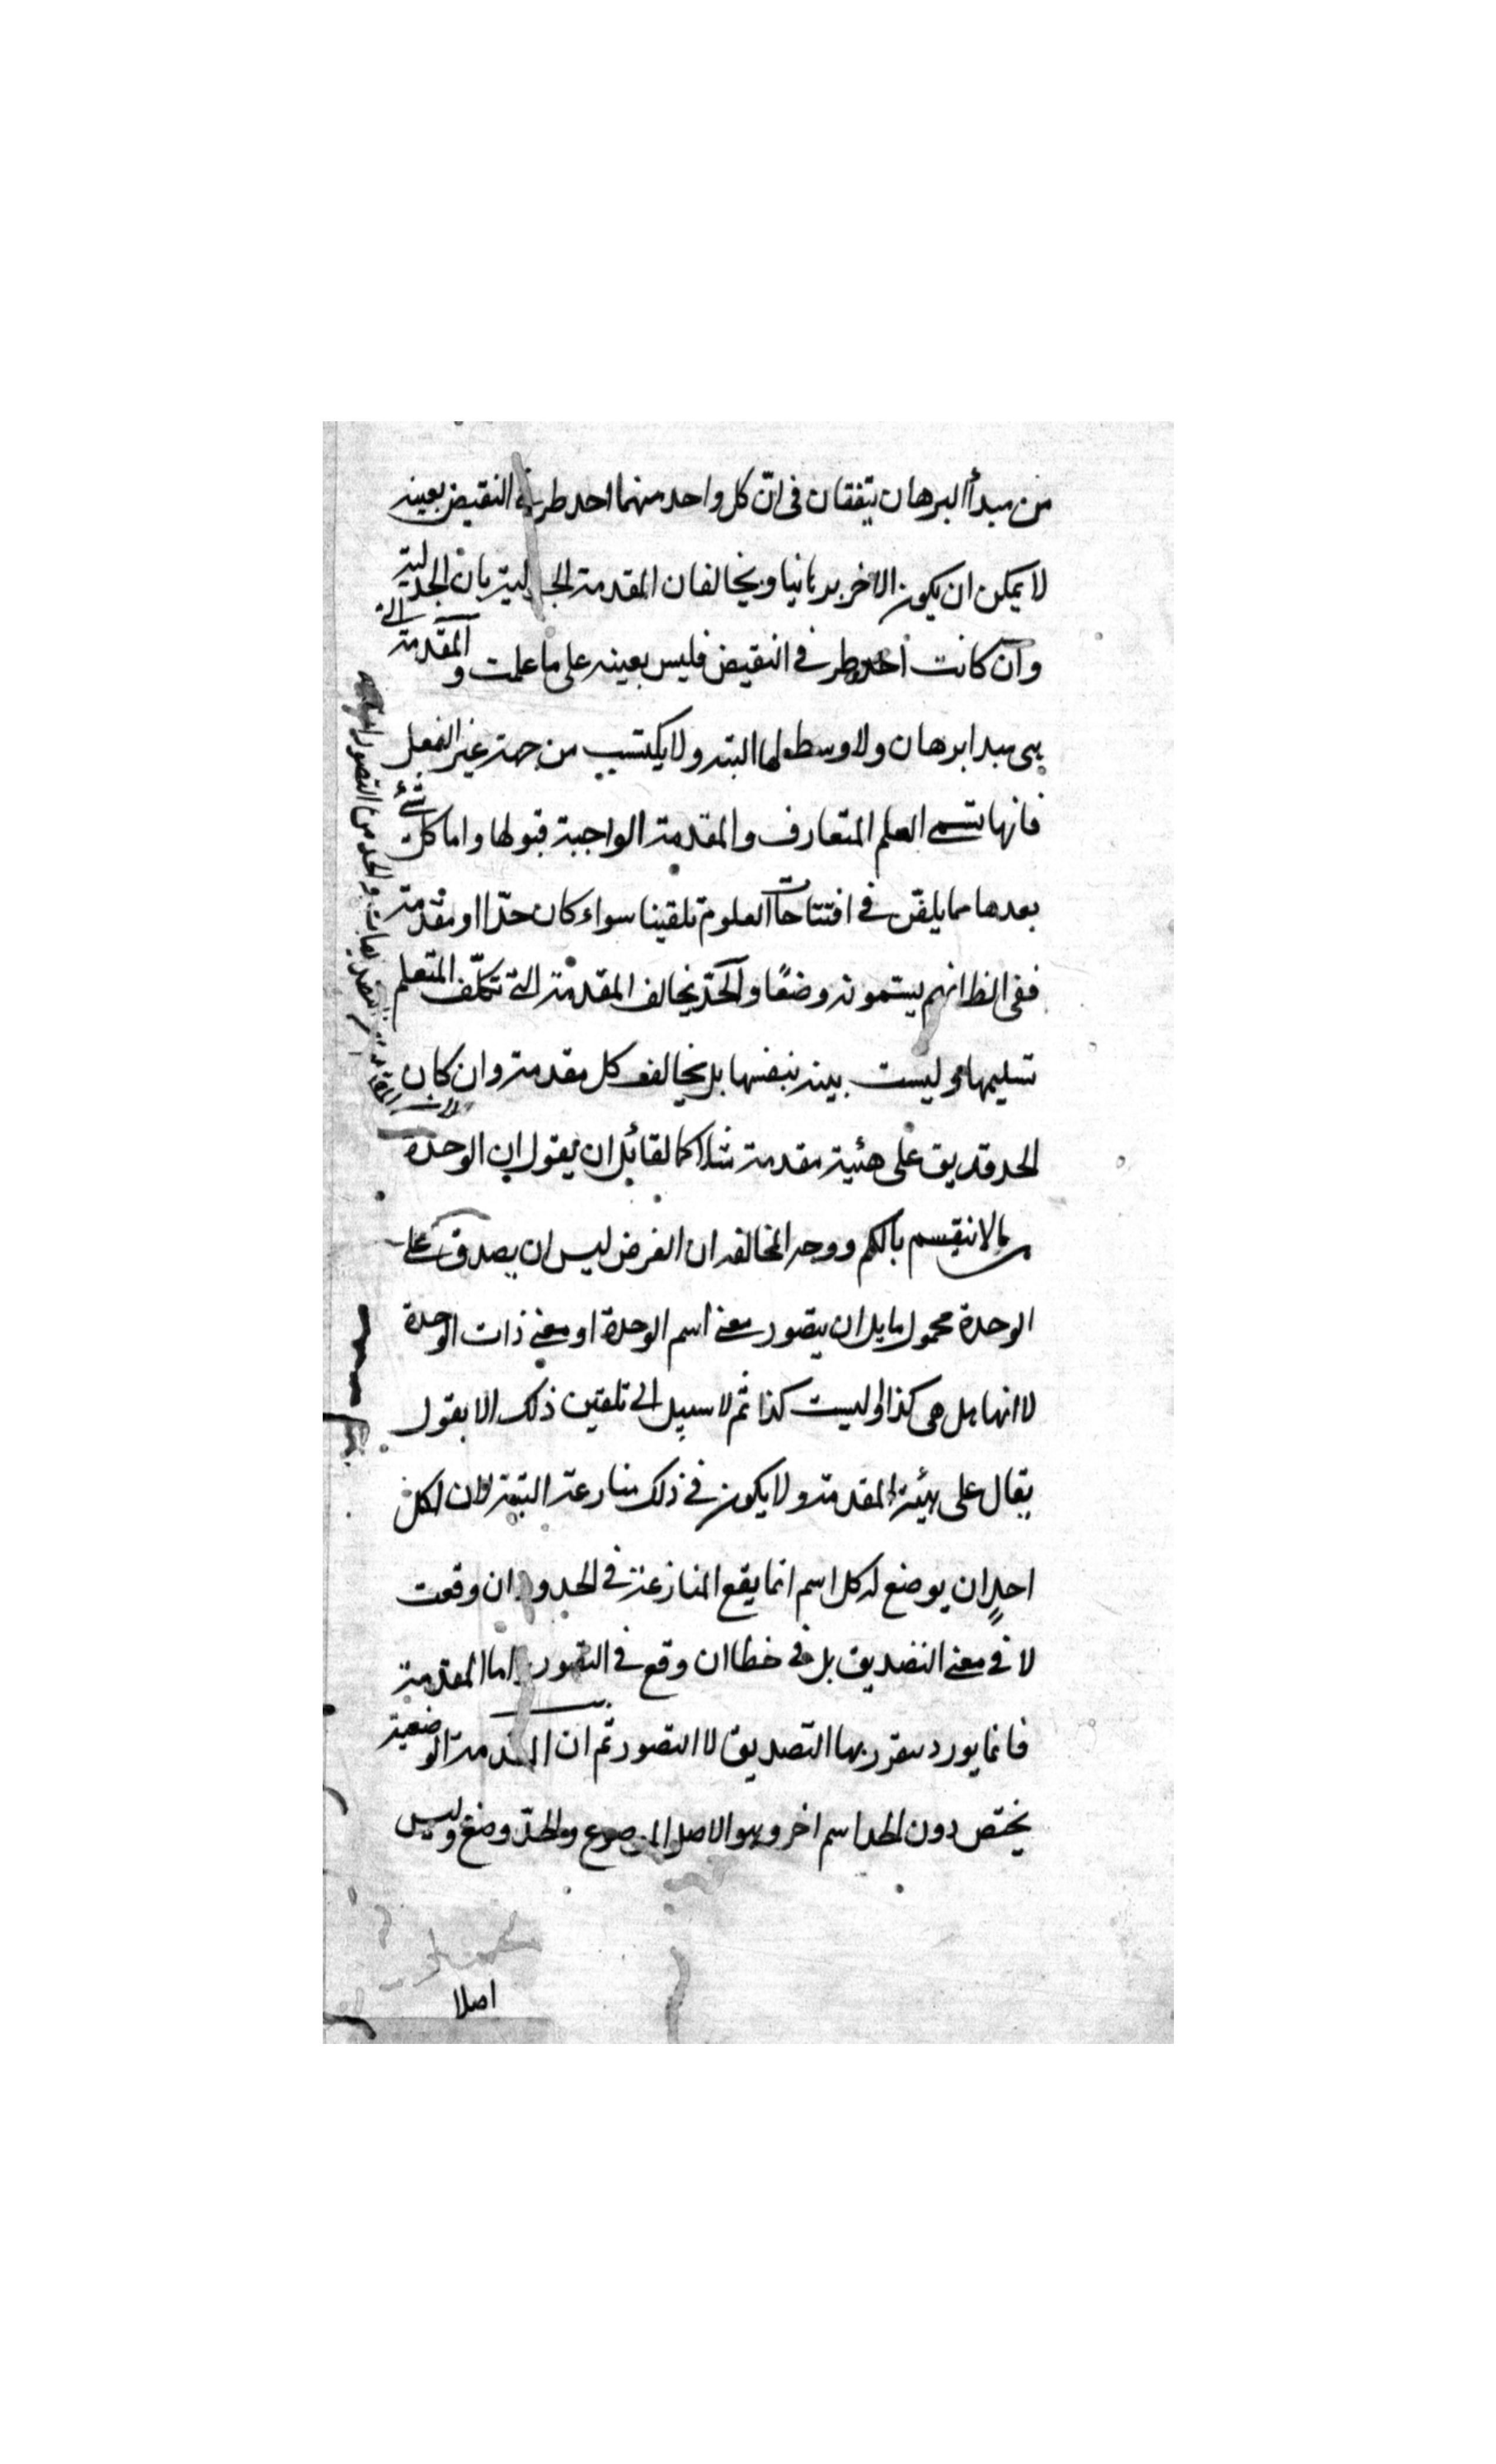 من مبدأ البرهان يتفقان فى انّ كل واحد منهما احد طرفى النقيض بعينه
لا يمكن ان يكون الاخر برهانيا ويخالفان المقدمة الجدلية بان الجدلية
وان كانت احد طرفى النقيض فليس بعينه على ما علمت و المقدمة التى
هى مبدا برهان ولا وسط لها البته ولا يكتسب من جهة غير العقل
فانها تسمى العلم المتعارف والمقدمة الواجبة قبولها واما كل شئ
بعدها مما يلقّن فى افتتاحات العلوم تلقينا سواء كان حدّا او مقدمة
ففى الظ انهم يسمونه وضعًا والحدّ يخالف المقدمة التى تكلّف المتعلم
تسليمها وليست بينه بنفسها بل يخالف كل مقدمة وان كان
الحد قد يق على هئية مقدمة مثلا كما لقائل ان يقول ان الوحدة
ما لا ينقسم بالكم ووجه المخالفه ان الغرض ليس ان يصدق على
الوحدة محمول ما بل ان يتصور معنى اسم الوحدة او معنى ذات الوحدة
لا انها هل هى كذا او ليست كذا ثم لا سبيل الى تلقين ذلك الا بقول
يقال على هيئة المقدمة ولا يكون فى ذلك منازعة البتة لان لكل
احدٍ ان يوضع له كل اسم انما يقع المنازعة فى الحدود ان وقعت
لا فى معنى التصديق بل فى خطا ان وقع فى التصور واما المقدمة
فانما يورد ليقرر بها التصديق لا التصور ثم ان المقدمة الوضعية
يختص دون الحد اسم اخر وهو الاصل الموضوع والحدّ وضع وليس
اصلا